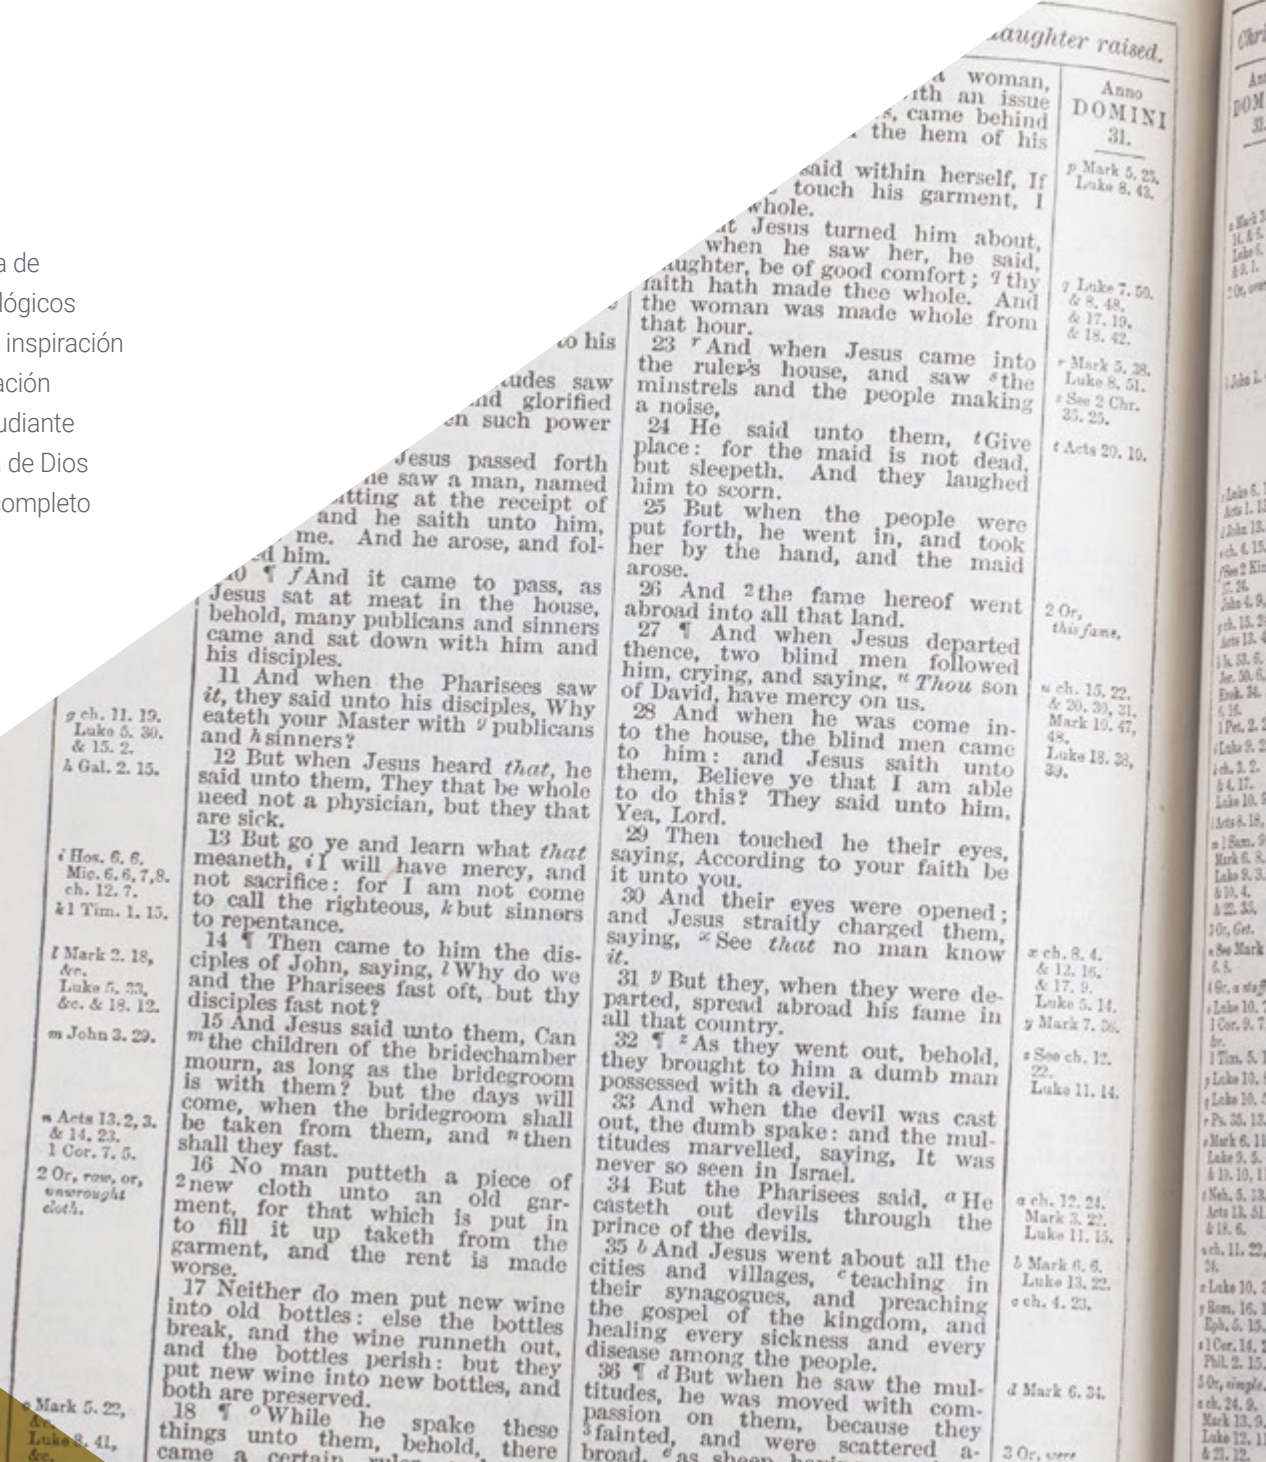 a de
lógicos
inspiración
ación
udiante
de Dios
ompleto
to his
tudes saw
nd glorified
en such power
Jesus passed forth
he saw a man, named
itting at the receipt of
and he saith unto him,
me. And he arose, and fol-
ed him.
10 ¶ f And it came to pass, as
Jesus sat at meat in the house,
behold, many publicans and sinners
came and sat down with him and
his disciples.
11 And when the Pharisees saw
it, they said unto his disciples, Why
eateth your Master with g publicans
and h sinners?
12 But when Jesus heard that, he
said unto them, They that be whole
need not a physician, but they that
are sick.
13 But go ye and learn what that
meaneth, i I will have mercy, and
not sacrifice: for I am not come
to call the righteous, k but sinners
to repentance.
14 ¶ Then came to him the dis-
ciples of John, saying, l Why do we
and the Pharisees fast oft, but thy
disciples fast not?
15 And Jesus said unto them, Can
m the children of the bridechamber
mourn, as long as the bridegroom
is with them? but the days will
come, when the bridegroom shall
be taken from them, and n then
shall they fast.
16 No man putteth a piece of
2 new cloth unto an old gar-
ment, for that which is put in
to fill it up taketh from the
garment, and the rent is made
worse.
17 Neither do men put new wine
into old bottles: else the bottles
break, and the wine runneth out,
and the bottles perish: but they
put new wine into new bottles, and
both are preserved.
18 ¶ o While he spake these
things unto them, behold, there
came a certain
g ch. 11. 19.
Luke 5. 30.
& 15. 2.
h Gal. 2. 15.
i Hos. 6. 6.
Mic. 6. 6, 7, 8.
ch. 12. 7.
k 1 Tim. 1. 15.
l Mark 2. 18,
&c.
Luke 5. 33,
&c. & 18. 12.
m John 3. 29.
n Acts 13. 2, 3.
& 14. 23.
1 Cor. 7. 5.
2 Or, raw, or,
unwrought
cloth.
o Mark 5. 22,
&c.
Luke 8. 41,
&c.
daughter raised.
a woman,
ith an issue
s, came behind
the hem of his
said within herself, If
touch his garment, I
whole.
t Jesus turned him about,
when he saw her, he said,
aughter, be of good comfort; q thy
faith hath made thee whole. And
the woman was made whole from
that hour.
23 r And when Jesus came into
the ruler's house, and saw s the
minstrels and the people making
a noise,
24 He said unto them, t Give
place: for the maid is not dead,
but sleepeth. And they laughed
him to scorn.
25 But when the people were
put forth, he went in, and took
her by the hand, and the maid
arose.
26 And 2 the fame hereof went
abroad into all that land.
27 ¶ And when Jesus departed
thence, two blind men followed
him, crying, and saying, u Thou son
of David, have mercy on us.
28 And when he was come in-
to the house, the blind men came
to him: and Jesus saith unto
them, Believe ye that I am able
to do this? They said unto him,
Yea, Lord.
29 Then touched he their eyes,
saying, According to your faith be
it unto you.
30 And their eyes were opened;
and Jesus straitly charged them,
saying, x See that no man know
it.
31 y But they, when they were de-
parted, spread abroad his fame in
all that country.
32 ¶ z As they went out, behold,
they brought to him a dumb man
possessed with a devil.
33 And when the devil was cast
out, the dumb spake: and the mul-
titudes marvelled, saying, It was
never so seen in Israel.
34 But the Pharisees said, a He
casteth out devils through the
prince of the devils.
35 b And Jesus went about all the
cities and villages, c teaching in
their synagogues, and preaching
the gospel of the kingdom, and
healing every sickness and every
disease among the people.
36 ¶ d But when he saw the mul-
titudes, he was moved with com-
passion on them, because they
3 fainted, and were scattered a-
broad, e as sheep
Anno
DOMINI
31.
p Mark 5. 25.
Luke 8. 43.
q Luke 7. 50.
& 8. 48.
& 17. 19.
& 18. 42.
r Mark 5. 38.
Luke 8. 51.
s See 2 Chr.
35. 25.
t Acts 20. 10.
2 Or,
this fame.
u ch. 15. 22.
& 20. 30, 31.
Mark 10. 47,
48.
Luke 18. 38,
39.
x ch. 8. 4.
& 12. 16.
& 17. 9.
Luke 5. 14.
y Mark 7. 36.
z See ch. 12.
22.
Luke 11. 14.
a ch. 12. 24.
Mark 3. 22.
Luke 11. 15.
b Mark 6. 6.
Luke 13. 22.
c ch. 4. 23.
d Mark 6. 34.
3 Or, were